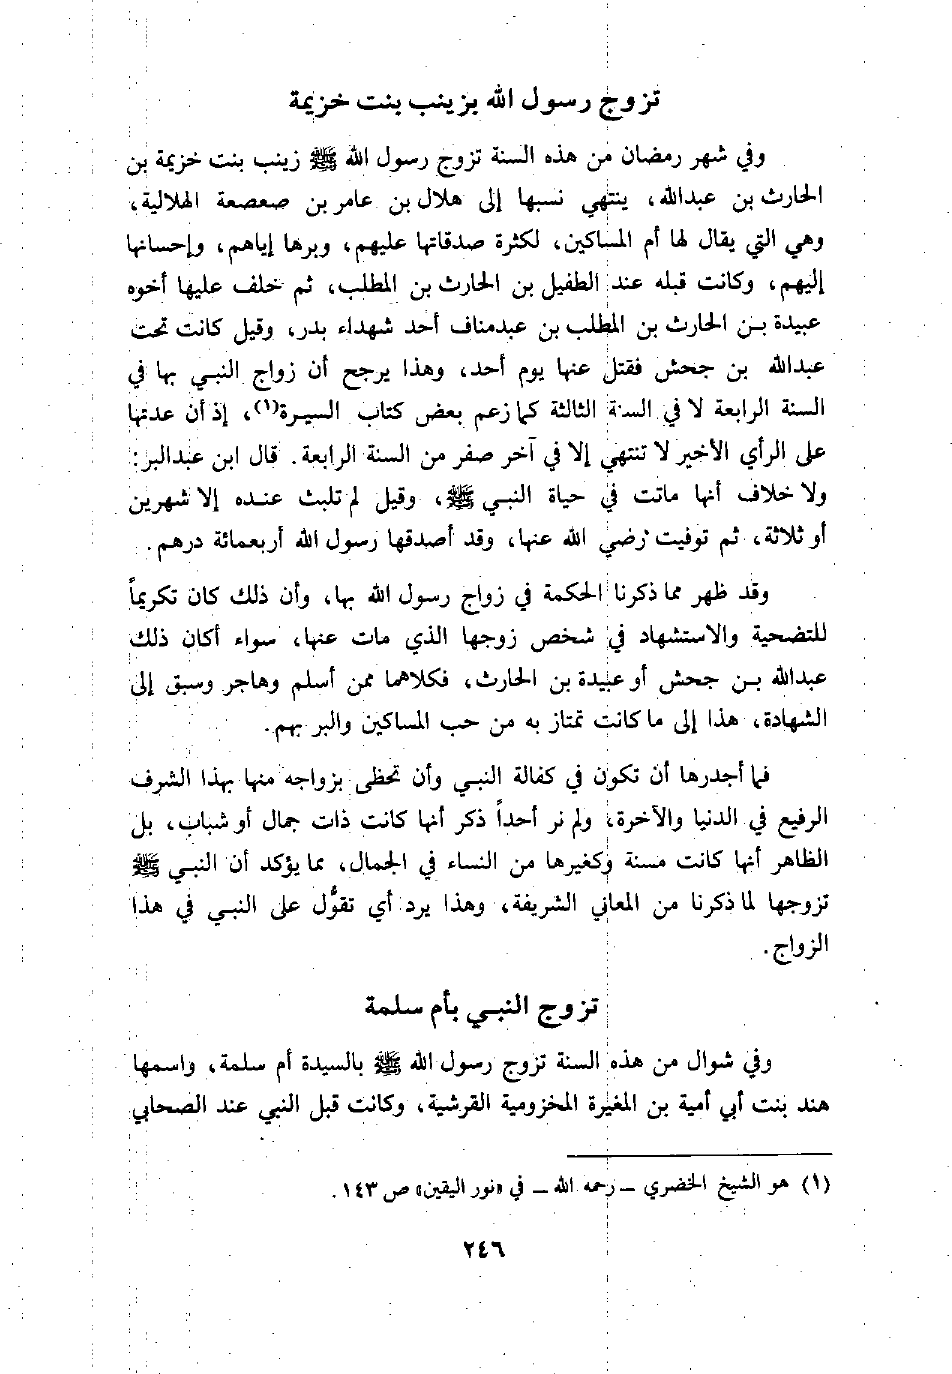 تزوج رسول الله بزينب بنت خزيمة
وفي شهر رمضان من هذه السنة تزوج رسول الله ﷺ زينب بنت خزيمة بن
الحارث بن عبدالله، ينتهي نسبها إلى هلال بن عامر بن صعصعة الهلالية،
وهي التي يقال لها أم المساكين، لكثرة صدقاتها عليهم، وبرها إياهم، وإحسانها
إليهم، وكانت قبله عند الطفيل بن الحارث بن المطلب، ثم خلف عليها أخوه
عبيدة بن الحارث بن المطلب بن عبدمناف أحد شهداء بدر، وقيل كانت تحت
عبدالله بن جحش فقتل عنها يوم أحد، وهذا يرجح أن زواج النبي بها في
السنة الرابعة لا في السنة الثالثة كما زعم بعض كتاب السيرة(١)، إذ أن عدتها
على الرأي الأخير لا تنتهي إلا في آخر صفر من السنة الرابعة. قال ابن عبدالبر:
ولا خلاف أنها ماتت في حياة النبي ﷺ، وقيل لم تلبث عنده إلا شهرين
أو ثلاثة، ثم توفيت رضي الله عنها، وقد أصدقها رسول الله أربعمائة درهم.
وقد ظهر مما ذكرنا الحكمة في زواج رسول الله بها، وأن ذلك كان تكريماً
للتضحية والاستشهاد في شخص زوجها الذي مات عنها، سواء أكان ذلك
عبدالله بن جحش أو عبيدة بن الحارث، فكلاهما ممن أسلم وهاجر وسبق إلى
الشهادة، هذا إلى ما كانت تمتاز به من حب المساكين والبر بهم.
فما أجدرها أن تكون في كفالة النبي وأن تحظى بزواجه منها بهذا الشرف
الرفيع في الدنيا والآخرة، ولم نر أحداً ذكر أنها كانت ذات جمال أو شباب، بل
الظاهر أنها كانت مسنة وكغيرها من النساء في الجمال، مما يؤكد أن النبي ﷺ
تزوجها لما ذكرنا من المعاني الشريفة، وهذا يرد أي تقوُّل على النبي في هذا
الزواج.
تزوج النبي بأم سلمة
وفي شوال من هذه السنة تزوج رسول الله ﷺ بالسيدة أم سلمة، واسمها
هند بنت أبي أمية بن المغيرة المخزومية القرشية، وكانت قبل النبي عند الصحابي
(١) هو الشيخ الخضري ــ رحمه الله ــ في «نور اليقين» ص ١٤٣.
٢٤٦